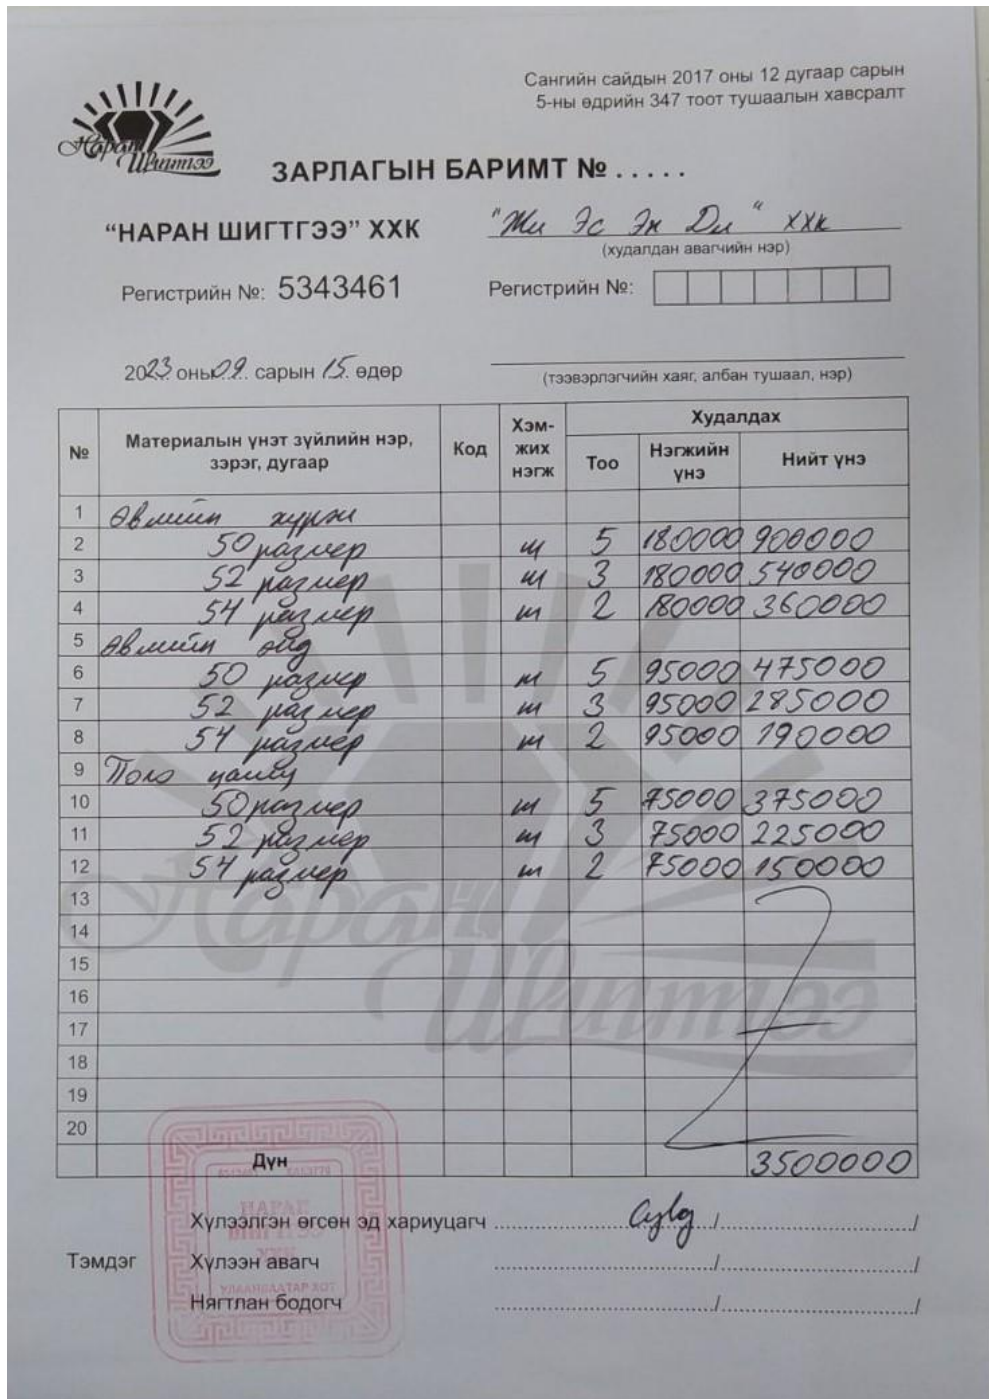 Наран
Шигтгээ
Сангийн сайдын 2017 оны 12 дугаар сарын
5-ны өдрийн 347 тоот тушаалын хавсралт
ЗАРЛАГЫН БАРИМТ № . . . . .
“НАРАН ШИГТГЭЭ” ХХК
"Жи Эс Эн Дл" ХХК
(худалдан авагчийн нэр)
Регистрийн №: 5343461
Регистрийн №:
2023 оны 09 сарын 15 өдөр
(тээвэрлэгчийн хаяг, албан тушаал, нэр)
№ Материалын үнэт зүйлийн нэр, зэрэг, дугаар Код Хэм-жих нэгж Худалдах
Тоо Нэгжийн үнэ Нийт үнэ
1 Өвлийн хүрэм
2 50 размер ш 5 180000 900000
3 52 размер ш 3 180000 540000
4 54 размер ш 2 180000 360000
5 Өвлийн өмд
6 50 размер ш 5 95000 475000
7 52 размер ш 3 95000 285000
8 54 размер ш 2 95000 190000
9 Поло цамц
10 50 размер ш 5 75000 375000
11 52 размер ш 3 75000 225000
12 54 размер ш 2 75000 150000
13
14
15
16
17
18
19
20
Дүн 3500000
Хүлээлгэн өгсөн эд хариуцагч ...................... / ...................... /
Тэмдэг Хүлээн авагч ...................... / ...................... /
Нягтлан бодогч ...................... / ...................... /
НАРАН
ШИГТГЭЭ
ХХК
УЛААНБААТАР ХОТ